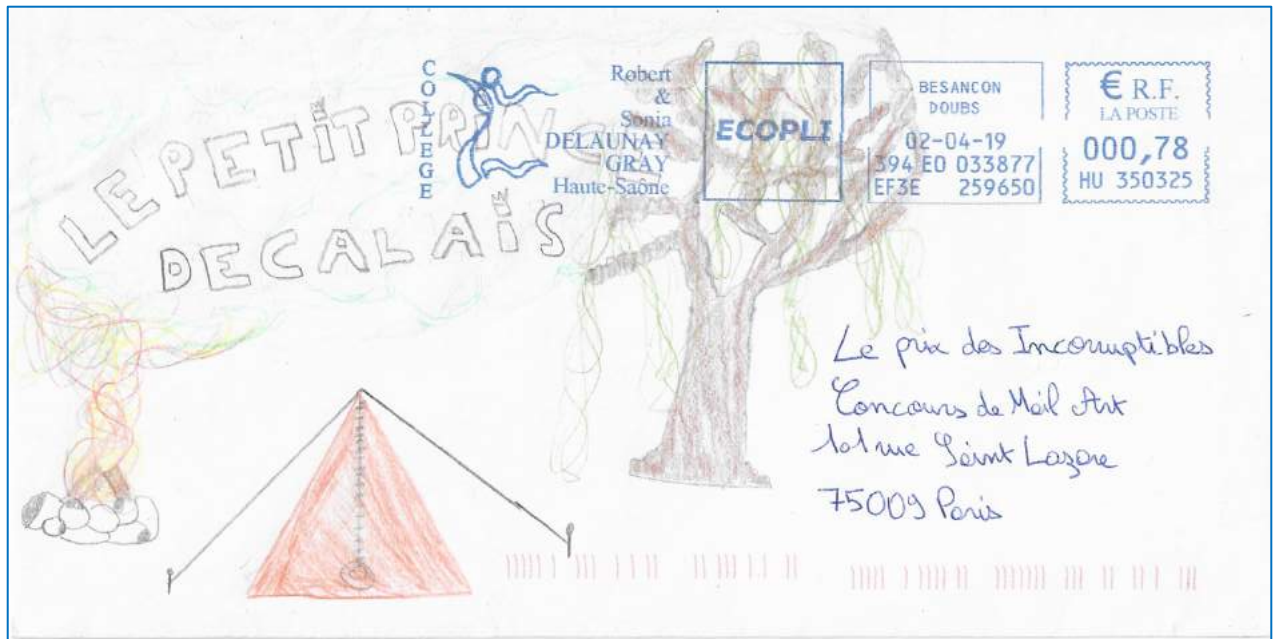 LE PETIT PRIN
DE CALAIS
COLLEGE
Robert
&
Sonia
DELAUNAY
GRAY
Haute-Saône
ECOPLI
BESANCON
DOUBS
02-04-19
394 EO 033877
EF3E 259650
€ R.F.
LA POSTE
000,78
HU 350325
Le prix des Incorruptibles
Concours de Mail Art
101 rue Saint Lazare
75009 Paris